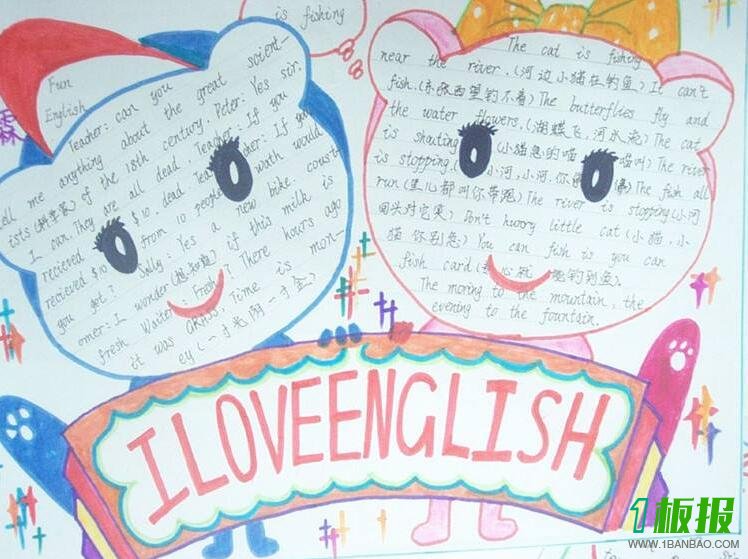 is fishing
Fun
English
Teacher: can you
tell me anything about the great scient-
ists (科学家) of the 18th century. Peter: Yes sir.
I can They are all dead. Teacher: If you
recieved $10 from 10 people
recieved $10
you get? Sally: Yes a new bike.
omer: I wonder if this milk is
fresh Waiter: Fresh? There hours ago
it was grass. Time is mon-
ey (一寸光阴一寸金)
The cat is fishing
near the river. (河边小猫在钓鱼) It can't
fish. (东张西望钓不着) The butterflies fly and
the water flowers. (蝴蝶飞,河水流) The cat
is shouting (小猫急的喵 喵叫) The river
is stopping. (小河,小河,你
run The fish all
The river is stopping (小河
回头对它笑) Don't hurry little cat (小猫,小
猫你别急) You can fish is you can
fish card
The moring to the mountain, the
evening to the fountain.
ILOVEENGLISH
1板报
WWW.1BANBAO.COM